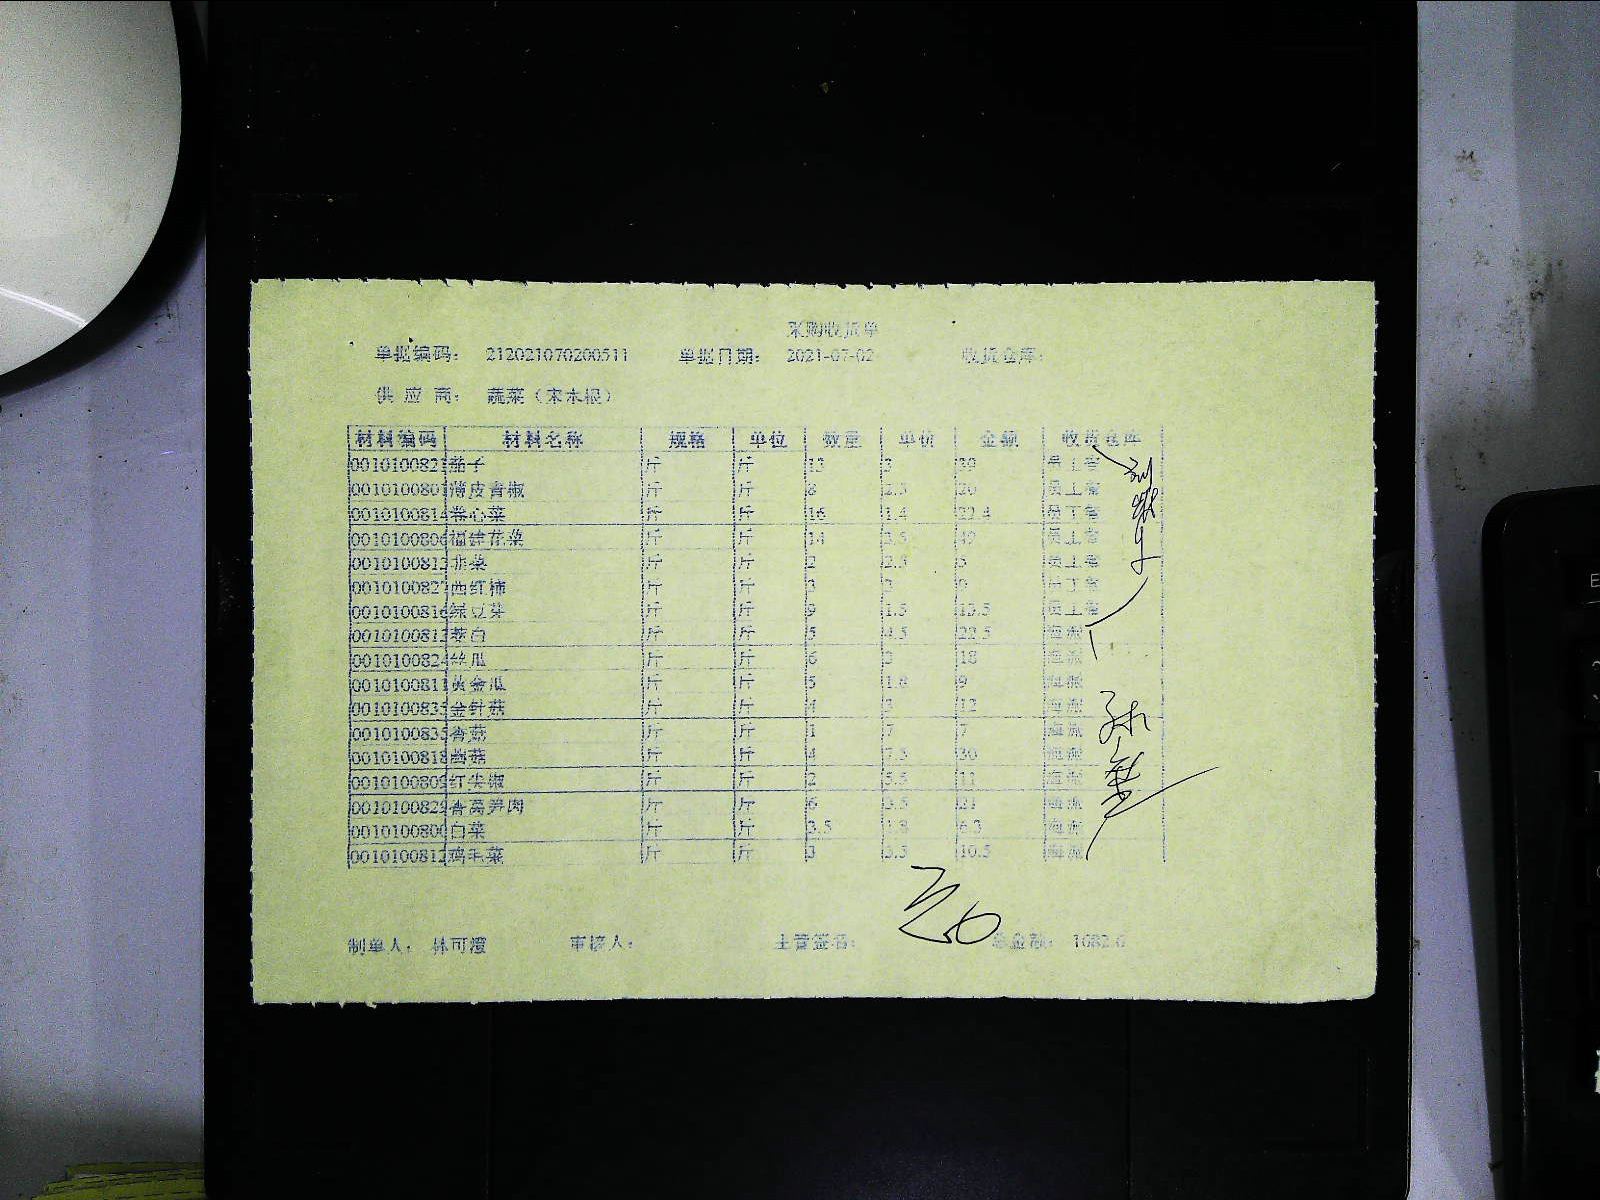 采购收货单
单据编码： 212021070200511 单据日期： 2021-07-02 收货仓库：
供 应 商： 蔬菜（宋木根）
材料编码 材料名称 规格 单位 数量 单价 金额 收货仓库
001010082 茄子 斤 斤 13 3 39 员工餐
0010100801 薄皮青椒 斤 斤 8 2.5 20 员工餐
0010100814 卷心菜 斤 斤 16 1.4 22.4 员工餐
0010100806 福建花菜 斤 斤 14 3.5 49 员工餐
001010081 韭菜 斤 斤 2 2.5 5 员工餐
001010082 西红柿 斤 斤 3 3 9 员工餐
0010100816 绿豆芽 斤 斤 9 1.5 13.5 员工餐
001010081 茭白 斤 斤 5 4.5 22.5 海派
0010100824 丝瓜 斤 斤 6 3 18 海派
0010100811 黄金瓜 斤 斤 5 1.8 9 海派
001010083 金针菇 斤 斤 4 3 12 海派
001010083 香菇 斤 斤 1 7 7 海派
0010100818 斤 斤 4 7.5 30 海派
0010100809 红尖椒 斤 斤 2 5.5 11 海派
001010082 香莴笋肉 斤 斤 6 3.5 21 海派
0010100800 白菜 斤 斤 3.5 1.8 6.3 海派
0010100812 鸡毛菜 斤 斤 3 3.5 10.5 海派
制单人： 林可 审核人： 主管签名： 总金额： 1082.6